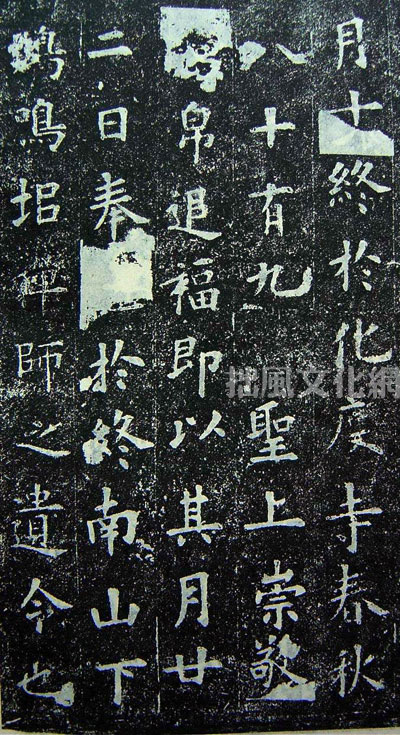 月十終於化度寺春秋
八十有九 聖上崇敬
帛追福即以其月廿
二日奉於終南山下
鳴垖禪師之遺令也
拙風文化網